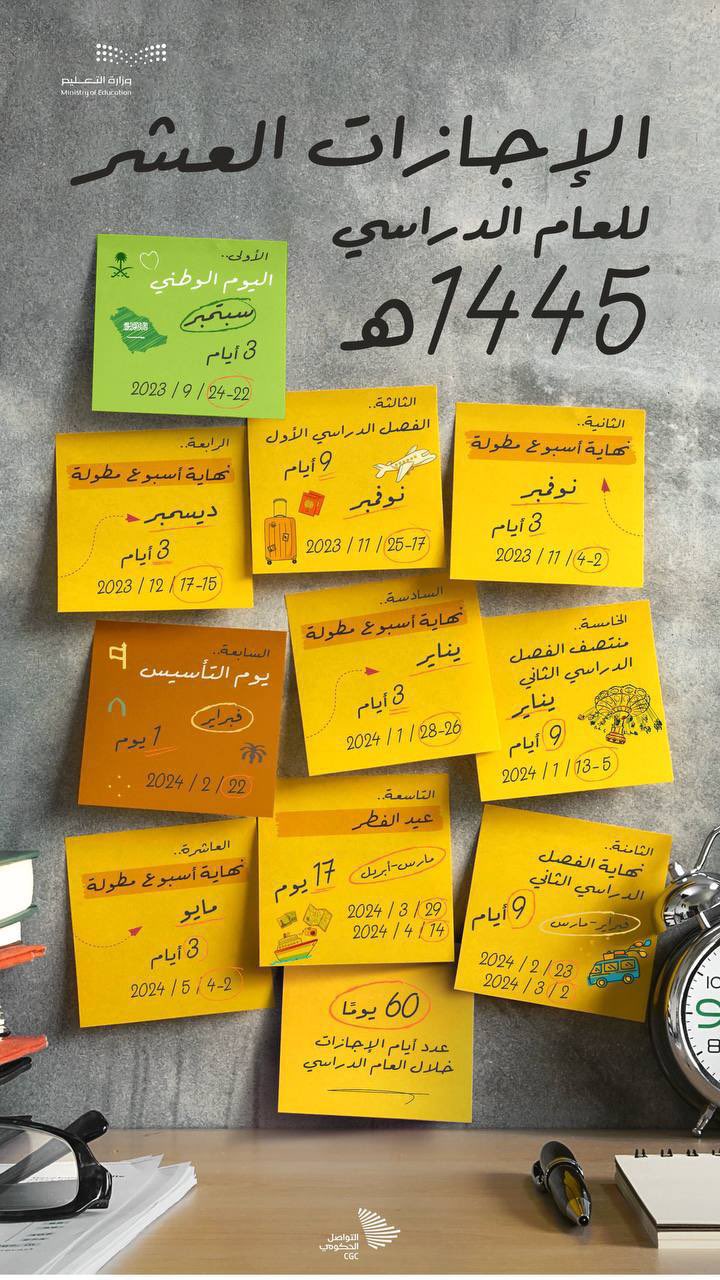 وزارة التعليم
Ministry of Education
الإجازات العشر
للعام الدراسي
1445هـ
الأولى..
اليوم الوطني
سبتمبر
3 أيام
2023 / 9 / 24-22
الثانية..
نهاية أسبوع مطولة
نوفمبر
3 أيام
2023 / 11 / 4-2
الثالثة..
الفصل الدراسي الأول
9 أيام
نوفمبر
2023 / 11 / 25-17
الرابعة..
نهاية أسبوع مطولة
ديسمبر
3 أيام
2023 / 12 / 17-15
الخامسة..
منتصف الفصل
الدراسي الثاني
يناير
9 أيام
2024 / 1 / 13-5
السادسة..
نهاية أسبوع مطولة
يناير
3 أيام
2024 / 1 / 28-26
السابعة..
يوم التأسيس
فبراير
1 يوم
2024 / 2 / 22
الثامنة..
نهاية الفصل
الدراسي الثاني
9 أيام
فبراير-مارس
2024 / 2 / 23
2024 / 3 / 2
التاسعة..
عيد الفطر
مارس-أبريل
17 يوم
2024 / 3 / 29
2024 / 4 / 14
العاشرة..
نهاية أسبوع مطولة
مايو
3 أيام
2024 / 5 / 4-2
60 يومًا
عدد أيام الإجازات
خلال العام الدراسي
10
9
8
التواصل
الحكومي
CGC